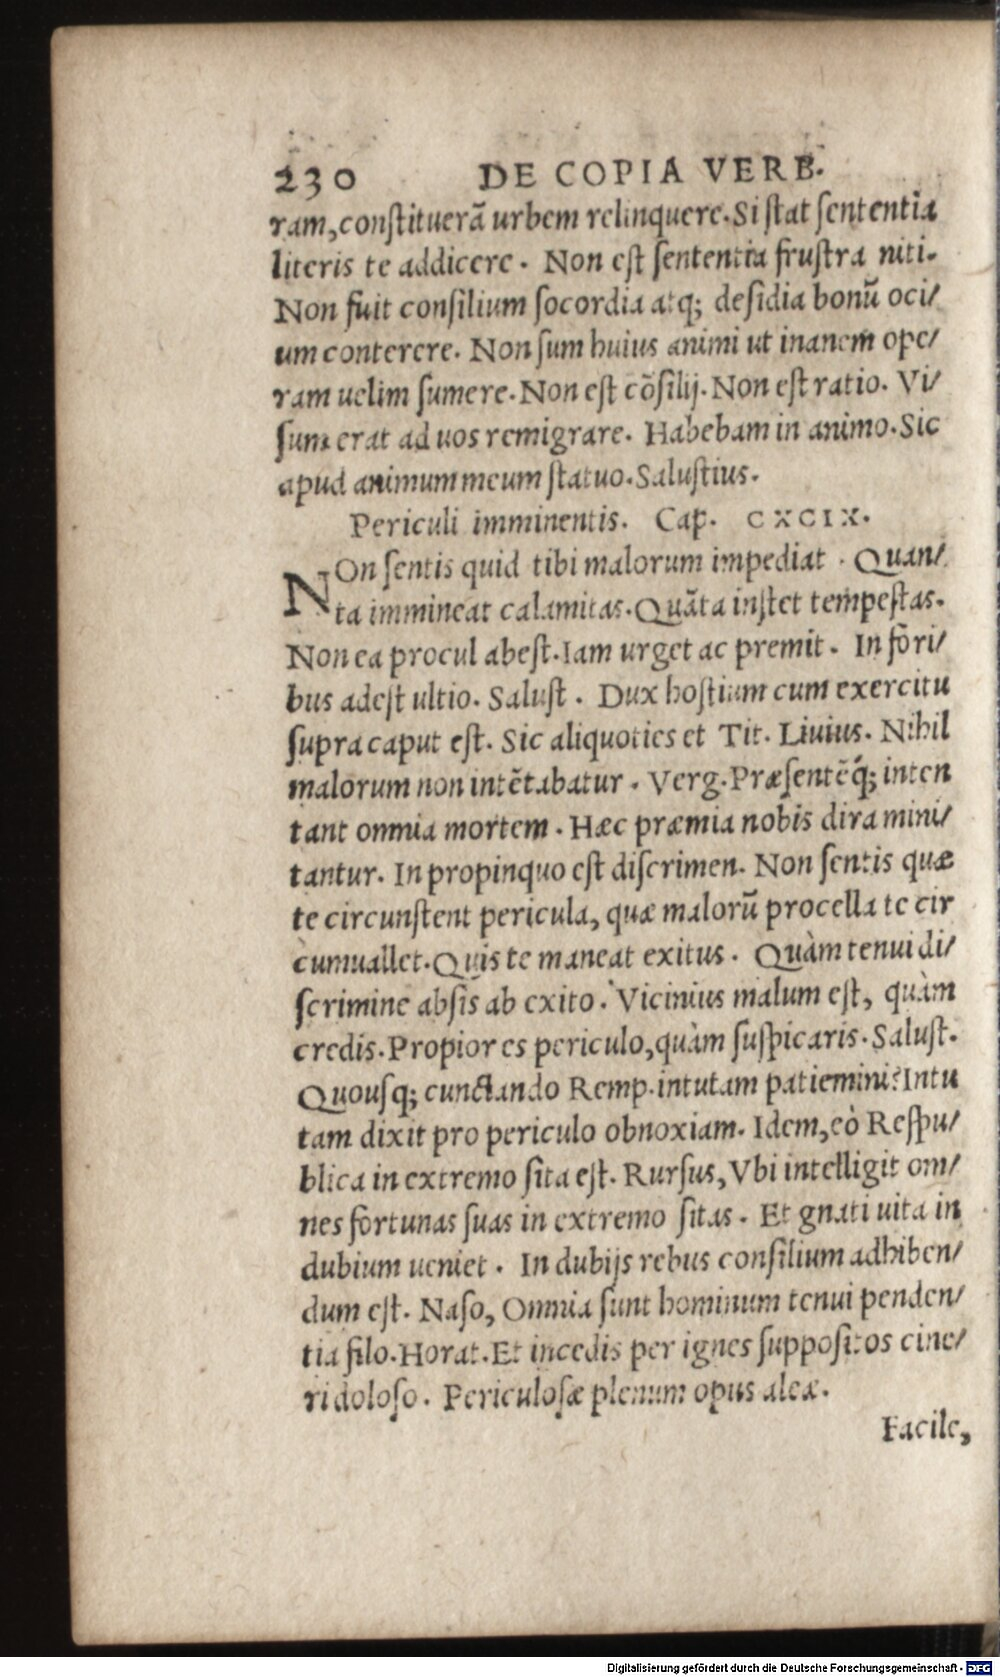 230 DE COPIA VERB.
ram, constituerã urbem relinquere. Si stat sententia
literis te addicere. Non est sententia frustra niti.
Non fuit consilium socordia atq; desidia bonũ oci/
um conterere. Non sum huius animi ut inanem ope/
ram uelim sumere. Non est cõsilij. Non est ratio. Vi/
sum erat ad uos remigrare. Habebam in animo. Sic
apud animum meum statuo. Salustius.
Periculi imminentis. Cap. CXCIX.
NOn sentis quid tibi malorum impediat. Quan/
ta immineat calamitas. Quãta instet tempestas.
Non ea procul abest. Iam urget ac premit. In fori/
bus adest ultio. Salust. Dux hostium cum exercitu
supra caput est. Sic aliquoties et Tit. Liuius. Nihil
malorum non intẽtabatur. Verg. Præsentẽq; inten
tant omnia mortem. Hæc præmia nobis dira mini/
tantur. In propinquo est discrimen. Non sentis quæ
te circunstent pericula, quæ malorũ procella te cir
cumuallet. Quis te maneat exitus. Quàm tenui di/
scrimine absis ab exito. Vicinius malum est, quàm
credis. Propior es periculo, quàm suspicaris. Salust.
Quousq; cunctando Remp. intutam patiemini? Intu
tam dixit pro periculo obnoxiam. Idem, eò Respu/
blica in extremo sita est. Rursus, Vbi intelligit om/
nes fortunas suas in extremo sitas. Et gnati uita in
dubium ueniet. In dubijs rebus consilium adhiben/
dum est. Naso, Omnia sunt hominum tenui penden/
tia filo. Horat. Et incedis per ignes suppositos cine/
ri doloso. Periculosæ plenum opus aleæ.
Facile,
Digitalisierung gefördert durch die Deutsche Forschungsgemeinschaft - DFG